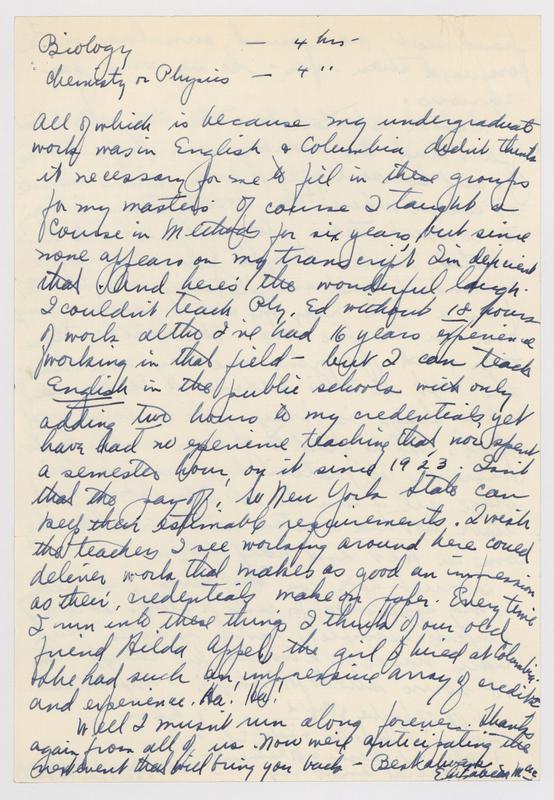 Biology — 4 hrs-
Chemisty or Physics — 4 "
All of which is because my undergraduate
work was in English & Columbia didn't think
it necessary for me to fill in these groups
for my masters. Of course I taught a
course in Methods for six years, but since
none appears on my transcript, I'm deficient
that. And here's the wonderful laugh.
I couldn't teach Phy. Ed without 18 hours
of work altho I've had 16 years experience
working in that field - but I can teach
English in the public schools with only
adding two hours to my credentials, yet
have had no experience teaching that nor spent
a semester hour on it since 1923. Isn't
that the payoff! So New York State can
keep their estimable requirements. I wish
the teachers I see working around here could
deliver work that makes as good an impression
as their credentials make on paper. Every time
I run into these things I think of our old
friend Hilda Appel, the girl I hired at Columbia.
She had such an impressive array of credits
and experience. Ha! Ha!
Well I musn't run along forever. Thanks
again from all of us. Now we're anticipating the
next event that will bring you back - Best always
Elizabeth